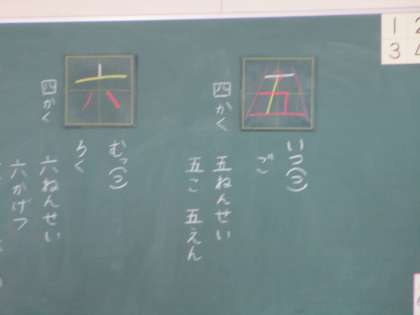 1 2
3 4
五
四かく
いつ(つ)
ご
五ねんせい
五こ 五えん
六
四かく
むっ(つ)
ろく
六ねんせい
六かげつ